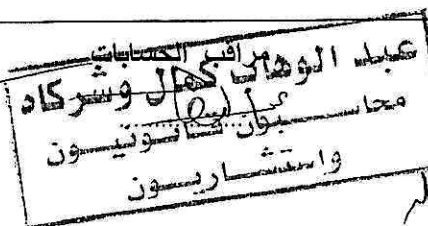 مراقب الحسابات
عبد الوهاب كحال وشركاه
محاسبون قانونيون
واستشاريون